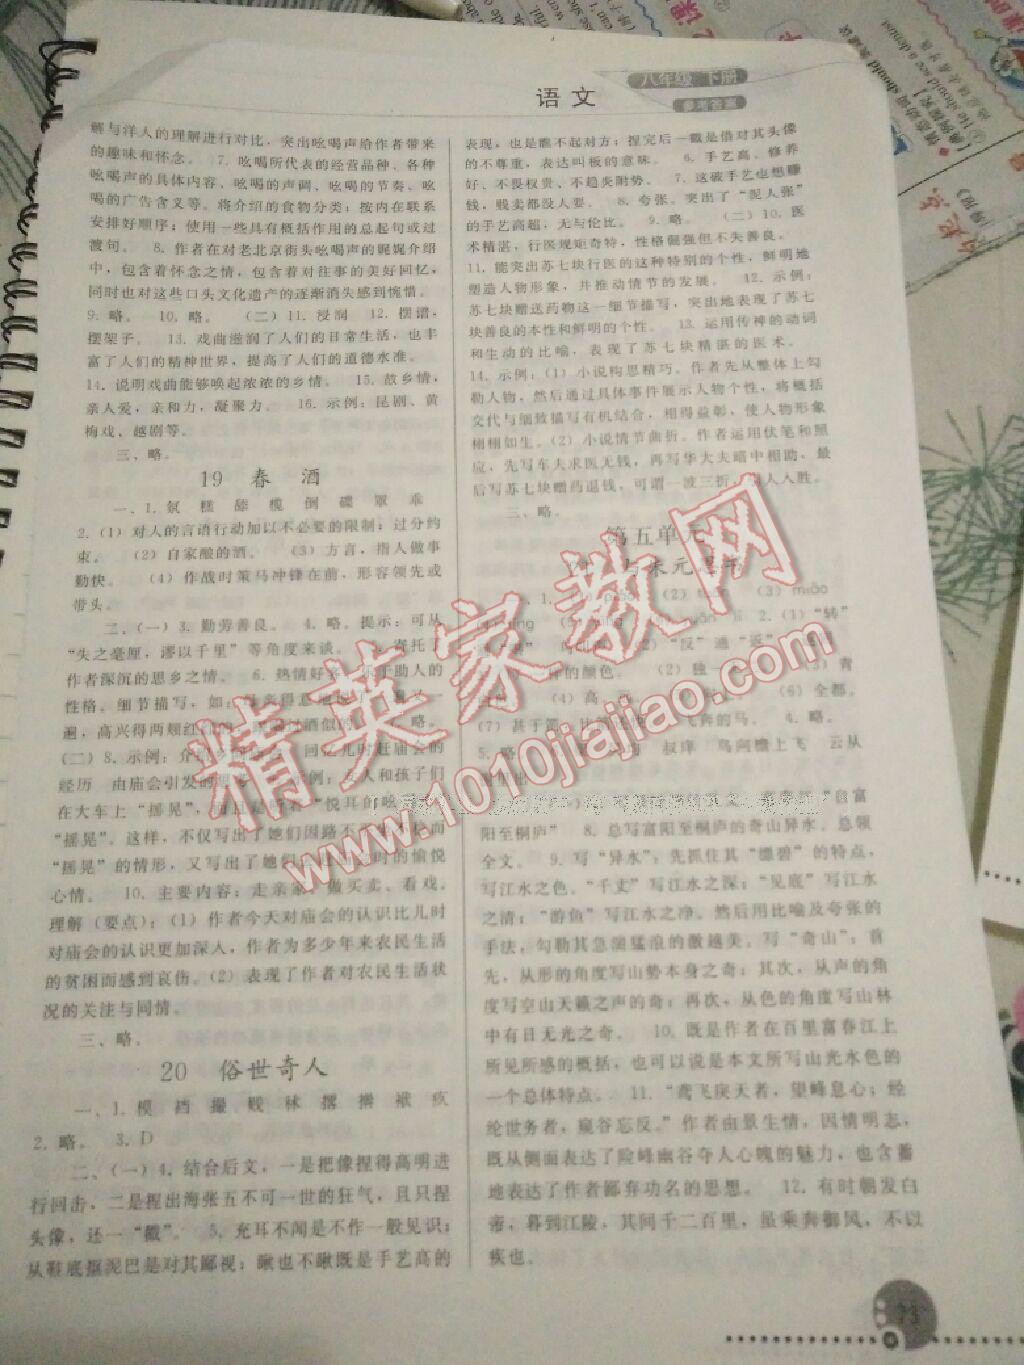 语文
八年级 下册
参考答案
解与洋人的理解进行对比，突出吆喝声给作者带来
的趣味和怀念。 7. 吆喝所代表的经营品种、各种
吆喝声的具体内容、吆喝的声调、吆喝的节奏、吆
喝的广告含义等。将介绍的食物分类；按内在联系
安排好顺序；使用一些具有概括作用的总起句或过
渡句。 8. 作者在对老北京街头吆喝声的娓娓介绍
中，包含着怀念之情，包含着对往事的美好回忆，
同时也对这些口头文化遗产的逐渐消失感到惋惜。
9. 略。 10. 略。 （二）11. 浸润 12. 摆谱，
摆架子。 13. 戏曲滋润了人们的日常生活，也丰
富了人们的精神世界，提高了人们的道德水准。
14. 说明戏曲能够唤起浓浓的乡情。 15. 故乡情，
亲人爱，亲和力，凝聚力。 16. 示例：昆剧、黄
梅戏、越剧等。
三、略。
19 春 酒
一、1. 氛 糕 舔 榄 倒 碟 罩 乖
2.（1）对人的言语行动加以不必要的限制；过分约
束。 （2）自家酿的酒。 （3）方言，指人做事
勤快。 （4）作战时策马冲锋在前，形容领先或
带头。
二、（一）3. 勤劳善良。 4. 略。提示：可从
“失之毫厘，谬以千里”等角度来谈。 5. 寄托了
作者深沉的思乡之情。 6. 热情好客、乐于助人的
性格。细节描写，如：母亲得意地说了一遍又一
遍，高兴得两颊红红的，跟喝过酒似的。 7. 略。
（二）8. 示例：介绍乡间庙会 回忆儿时赶庙会的
经历 由庙会引发的思考 9. 示例：女人和孩子们
在大车上“摇晃”，而且是听着“悦耳的吆喝”
“摇晃”。这样，不仅写出了她们因路不平坐不稳而
“摇晃”的情形，又写出了她们去赶庙会时的愉悦
心情。 10. 主要内容：走亲家、做买卖、看戏。
理解（要点）：（1）作者今天对庙会的认识比儿时
对庙会的认识更加深入，作者为多少年来农民生活
的贫困而感到哀伤。（2）表现了作者对农民生活状
况的关注与同情。
三、略。
20 俗世奇人
一、1. 模 裆 撮 贱 秫 撂 擀 袱 疚
2. 略。 3. D
二、（一）4. 结合后文，一是把像捏得高明进
行回击，二是捏出海张五不可一世的狂气，且只捏
头像，还一“戳”。 5. 充耳不闻是不作一般见识；
从鞋底抠泥巴是对其鄙视；瞅也不瞅既是手艺高的
表现，也是瞧不起对方；捏完后一戳是借对其头像
的不尊重，表达叫板的意味。 6. 手艺高、修养
好、不畏权贵、不趋炎附势。 7. 这破手艺也想赚
钱，贱卖都没人要。 8. 夸张。突出了“泥人张”
的手艺高超，无与伦比。 9. 略。 （二）10. 医
术精湛，行医规矩奇特，性格倔强但不失善良。
11. 能突出苏七块行医的这种特别的个性，鲜明地
塑造人物形象，并推动情节的发展。 12. 示例：
苏七块赠送药物这一细节描写，突出地表现了苏七
块善良的本性和鲜明的个性。 13. 运用传神的动词
和生动的比喻，表现了苏七块精湛的医术。
14. 示例：（1）小说构思精巧。作者先从整体上勾
勒人物，然后通过具体事件展示人物个性，将概括
交代与细致描写有机结合，相得益彰，使人物形象
栩栩如生。（2）小说情节曲折。作者运用伏笔和照
应，先写车夫求医无钱，再写华大夫暗中相助，最
后写苏七块赠药退钱，可谓一波三折，引人入胜。
三、略。
第五单元
21 与朱元思书
一、1.（1）piǎo （2）tuān （3）miǎo
2.（1）“转”
“反”通“返”
样的颜色。 （2）独 （3）青
（4）高 （6）全都。
（7）甚于箭，比箭还快 飞奔的马。 4. 略。
5. 略 叔庠 鸟向檐上飞 云从
窗里出
“自富
阳至桐庐” 8. 总写富阳至桐庐的奇山异水。总领
全文。 9. 写“异水”：先抓住其“缥碧”的特点，
写江水之色。“千丈”写江水之深；“见底”写江水
之清；“游鱼”写江水之净。然后用比喻及夸张的
手法，勾勒其急湍猛浪的激越美。写“奇山”：首
先，从形的角度写山势本身之奇；其次，从声的角
度写空山天籁之声的奇；再次，从色的角度写山林
中有日无光之奇。 10. 既是作者在百里富春江上
所见所感的概括，也可以说是本文所写山光水色的
一个总体特点。 11. “鸢飞戾天者，望峰息心；经
纶世务者，窥谷忘反。”作者由景生情，因情明志，
既从侧面表达了险峰幽谷夺人心魄的魅力，也含蓄
地表达了作者鄙弃功名的思想。 12. 有时朝发白
帝，暮到江陵，其间千二百里，虽乘奔御风，不以
疾也。
73
精英家教网
www.1010jiajiao.com